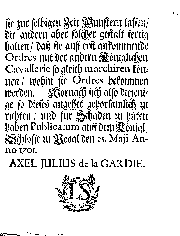 sie zur selbigen Zeit Munstern lassen/
die andern aber solcher gestalt fertig
halten/ daß sie auff erst ankommende
Ordres mit der andern Königlichen
Cavallerie so gleich marchiren kön-
nen/ wohin sie Ordres bekommen
werden. Wornach sich also diejeni-
ge so dieses angehet gehorsamlich zu
richten/ und für Schaden zu hüten
haben Publicatum auff dem Königl.
Schlosse zu Reval den 25. Maji An-
no 1701.
AXEL JULIUS de la GARDIE.
LS